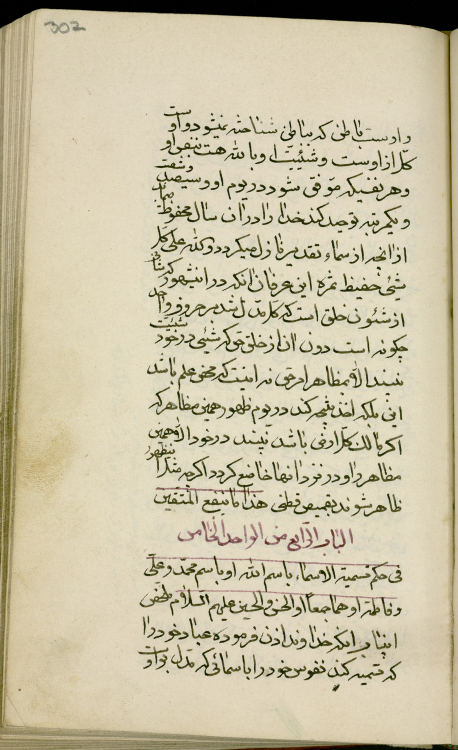 302
و اوست باطنی که بباطن شناخته نمیشود و اوست
کل از اوست و شیئیت او بالله هست بنفس او
و هر نفسیکه موفق شود در یوم او و سیصد و شصت
و یکمرتبه توحید کند خدا را در آن سال محفوظ
از آنچه از سماء تقدیر نازل میگردد و کان الله علی کل
شیئ حفیظ ثمره این عرفان آنکه در آن شهور که
از شئون خلق است که کل مدل شد بر حروف واحد
چگونه است دون آن از خلق حق که شیئی در خود
نبیند الا مظاهر امر حق نه اینست که محض علم باشد
این بلکه اخذ نتیجه کند در یوم ظهور همین مظاهر که
اگر مالک کل ارض باشد نبیند در خود الا همین
مظاهر را و در نزد آنها خاضع گردد اگر چه
ظاهر شوند بقمیص قطن هذا ما ینفع المتقین
الباب الرابع من الواحد الخامس
فی حکم تسمیة الاسماء باسم الله او باسم محمد و علی
و فاطمة او هما جمعا او الحسن و الحسین علیهم السلام ملخص
این باب آنکه خداوند اذن فرموده عباد خود را
که تسمیه کنند نفوس خود را باسمائی که مدل بر او است